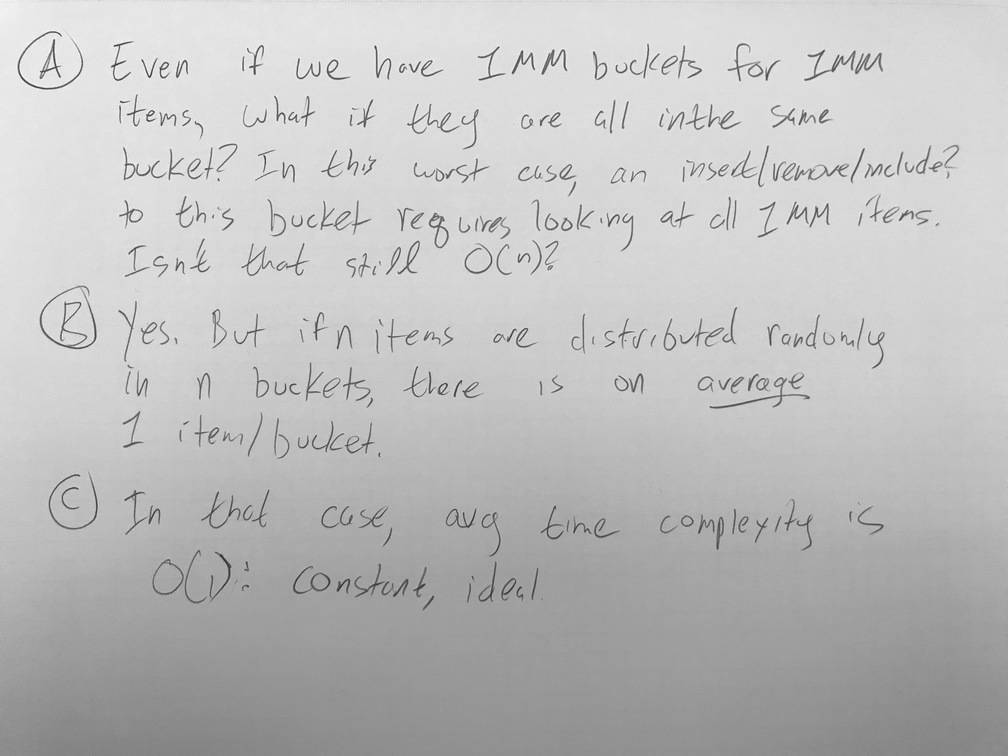 A Even if we have 1MM buckets for 1MM
items, what if they are all in the same
bucket? In this worst case, an insert/remove/include?
to this bucket requires looking at all 1MM items.
Isn't that still O(n)?
B Yes. But if n items are distributed randomly
in n buckets, there is on average
1 item/bucket.
C In that case, avg time complexity is
O(1): constant, ideal.